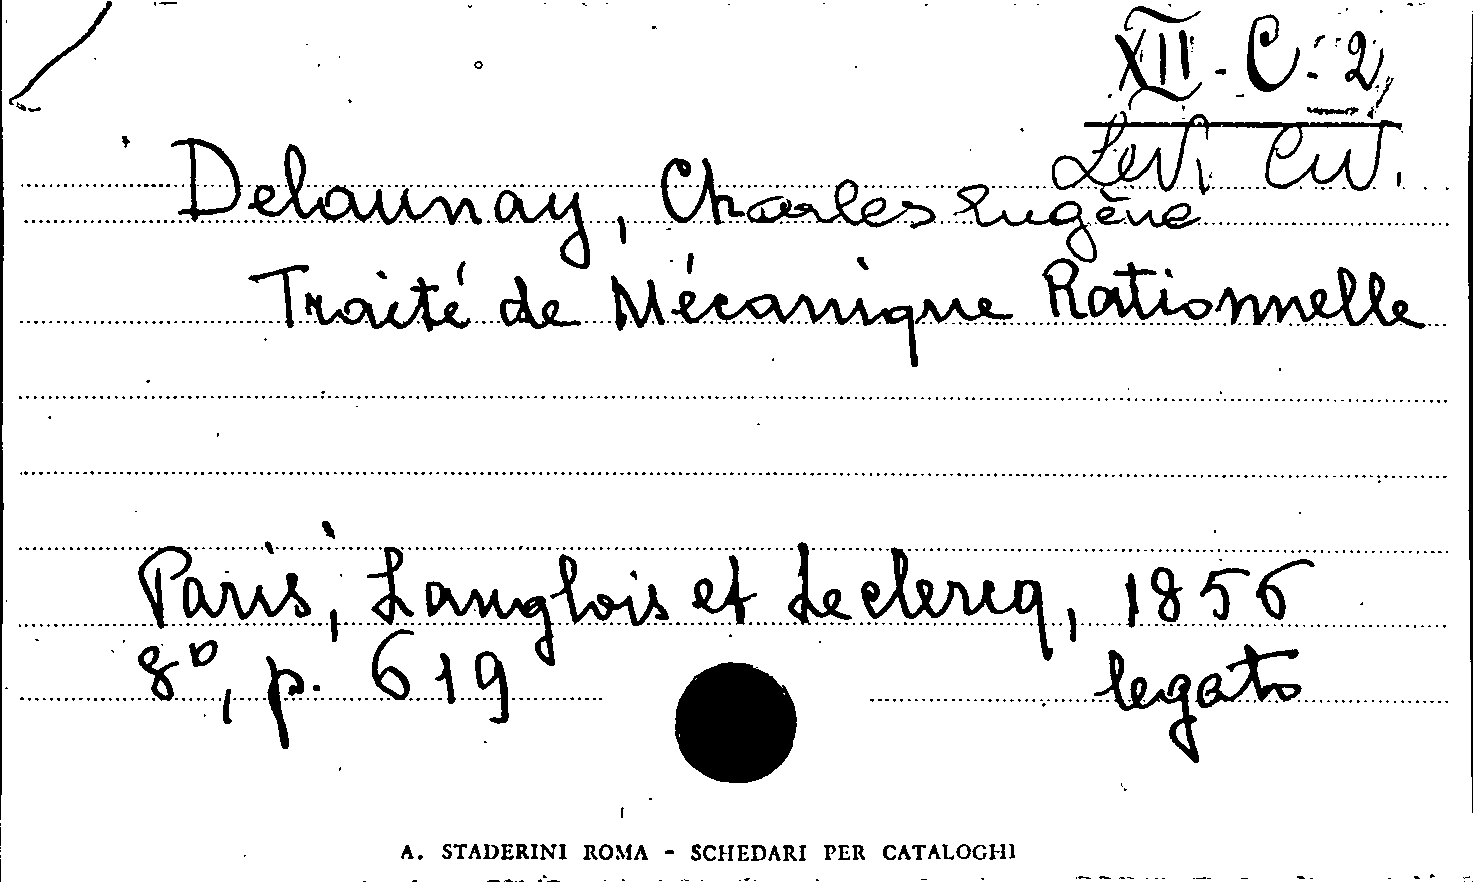 XII - C - 2
Levi Civ.
Delaunay, Charles Eugène
Traité de Mécanique Rationnelle
Paris, Langlois et Leclercq, 1856
8º, p. 619
legato
A. STADERINI ROMA - SCHEDARI PER CATALOGHI